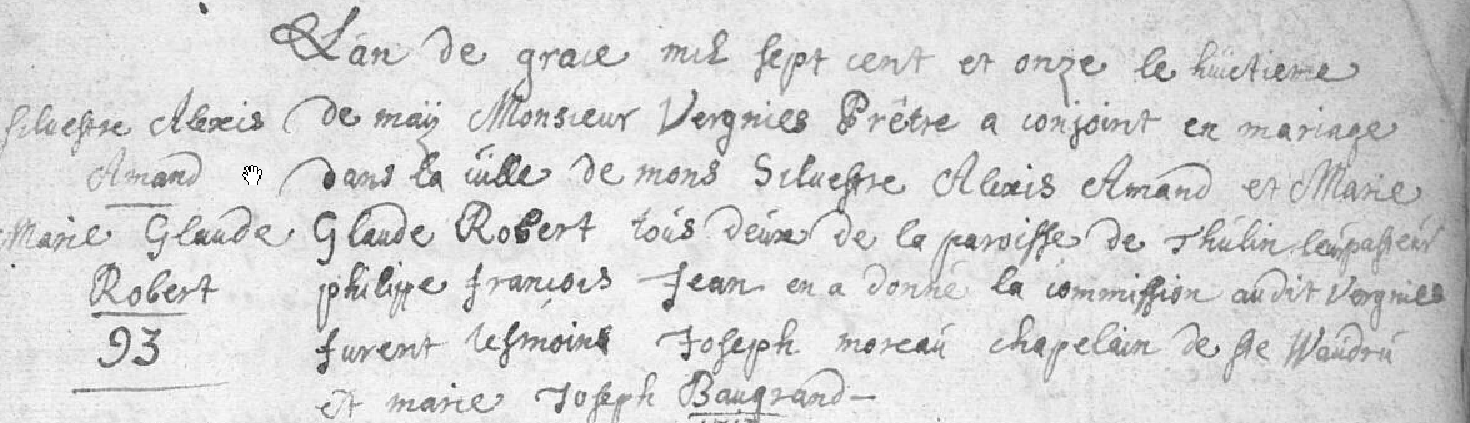 L'an de grace mil sept cent et onze le huictieme
Silvestre Alexis
Amand
Marie Glaude
Robert
93
de maÿ Monsieur Vergnies Prêtre a conjoint en mariage
dans la ville de mons Silvestre Alexis Amand et Marie
Glaude Robert tous deux de la paroisse de Thulin leur pasteur
philippe francois Jean en a donné la commission audit Vergnies
furent tesmoins Joseph moreau chapelain de Ste Waudru
et marie Joseph Baugrand